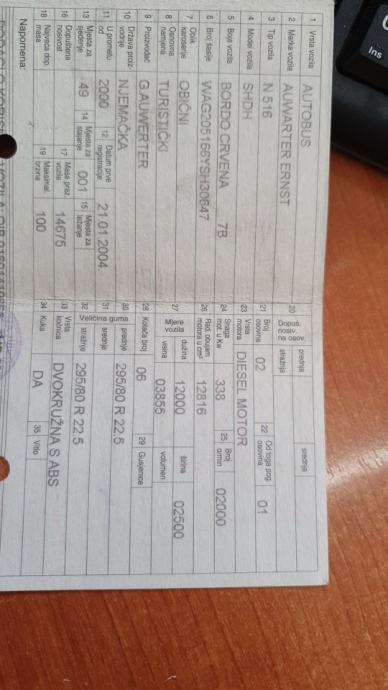 1 Vrsta vozila AUTOBUS
2 Marka vozila AUWARTER ERNST
3 Tip vozila N 516
4 Model vozila SHDH
5 Boja vozila BORDO CRVENA 7B
6 Broj šasije WAG205166YSH30647
7 Oblik karoserije OBIČNI
8 Osnovna namjena TURISTIČKI
9 Proizvođač G AUWERTER
10 Država proizvodnje NJEMAČKA
11 U prometu od 2000 12 Datum prve registracije 21.01.2004.
13 Mjesta za sjedenje 49 14 Mjesta za stajanje 001 15 Mjesta za ležanje
16 Dopuštena nosivost 17 Masa praz. vozila 14675
18 Najveća dop. masa 19 Maksimal. brzina 100
Napomena:
20 Dopuš. nosiv. na osov. prednja srednja
stražnja
21 Broj osovina 02 22 Od toga pog. osovina 01
23 Vrsta motora DIESEL MOTOR
24 Snaga mot. u Kw 338 25 Broj o/min 02000
26 Rad. obujam motora u cm³ 12816
27 Mjere vozila dužina 12000 širina 02500
visina 03855 volumen
28 Kotača broj 06 29 Gusjenice
Veličina guma
30 prednje 295/80 R 22.5
31 srednje
32 stražnje 295/80 R 22.5
33 Vrsta kočnica DVOKRUŽNA S ABS
34 Kuka DA 35 Vitlo
Ins